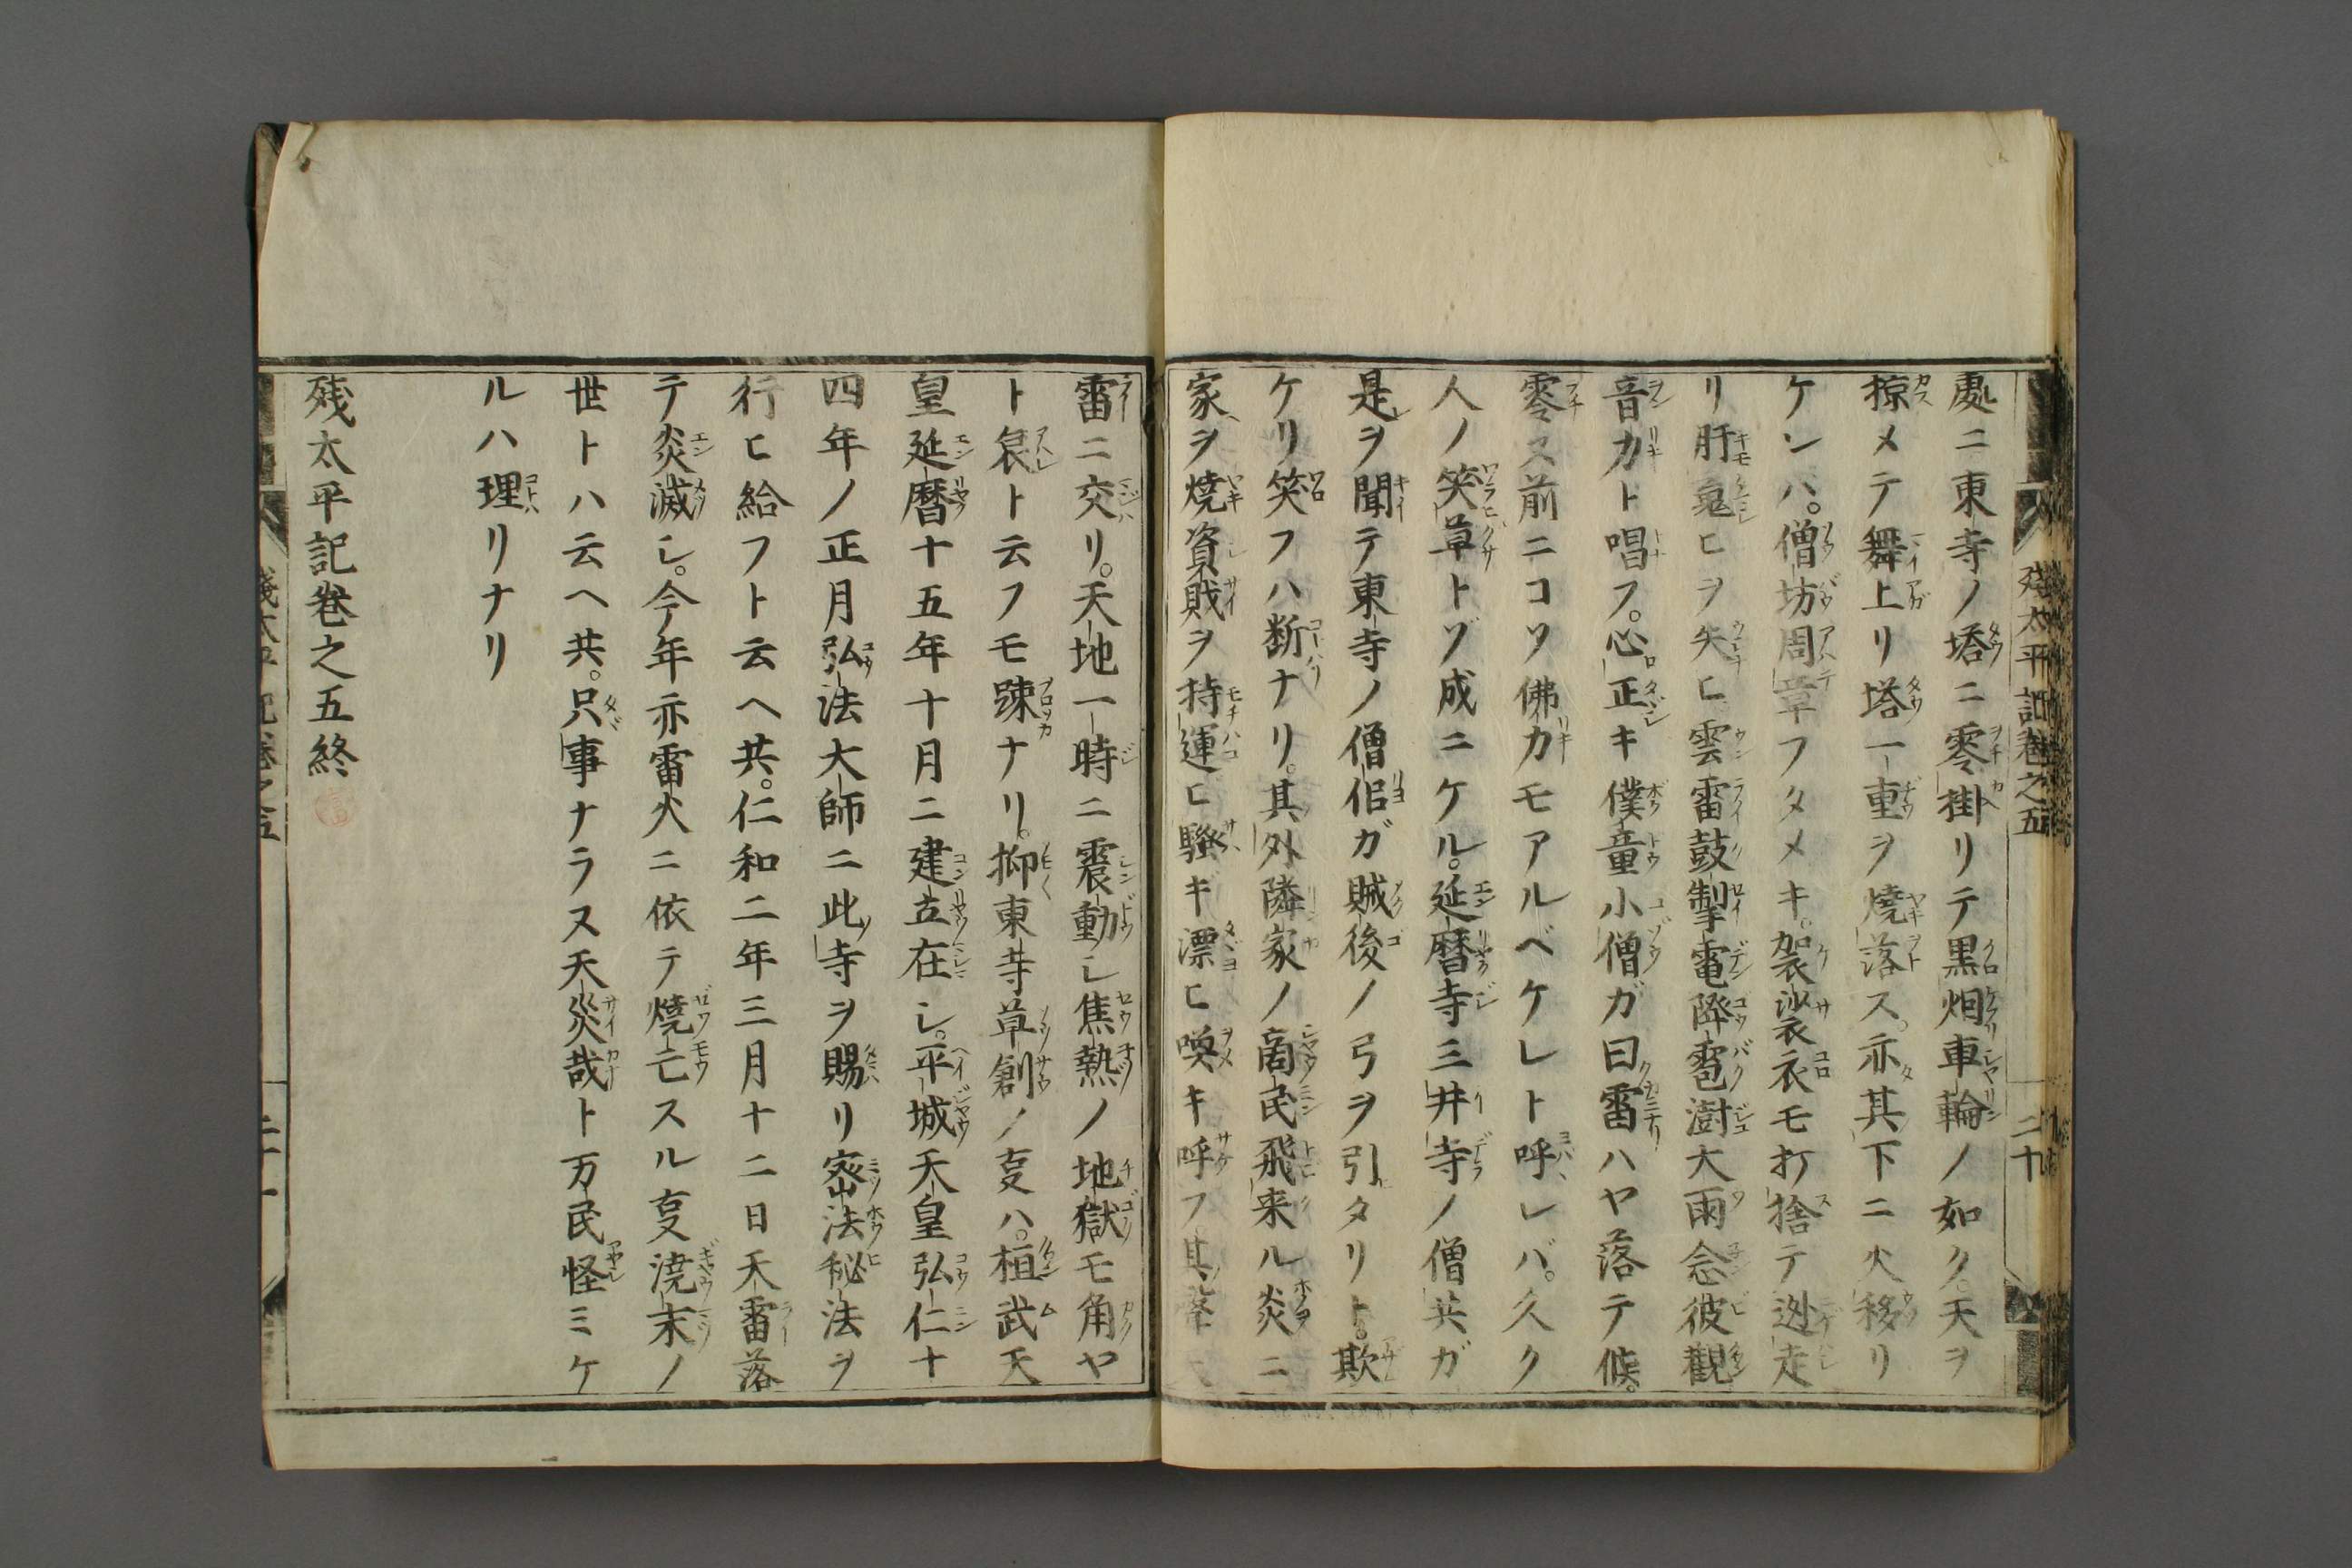 残太平記巻之五
二十
處ニ東寺ノ塔ニ零掛リテ黒烟車輪ノ如ク天ヲ
掠メテ舞上リ塔一重ヲ燒落ス。亦其下ニ火移リ
ケンバ。僧坊周章フタメキ。袈裟衣モ打捨テ迯走
リ肝䰟ヒヲ失ヒ雲雷鼓掣電降雹澍大雨念彼觀
音力ト唱フ。心正キ僕童小僧ガ曰雷ハヤ落テ候。
零ヌ前ニコソ佛力モアルベケレト呼レバ。久ク
人ノ笑草トゾ成ニケル。延暦寺三井寺ノ僧共ガ
是ヲ聞テ東寺ノ僧侶ガ賊後ノ弓ヲ引タリト。欺
ケリ笑フハ断ナリ。其外隣家ノ商民飛来ル炎ニ
家ヲ燒資賊ヲ持運ヒ騒ギ漂ヒ喚キ呼フ。其聲
雷ニ交リ。天地一時ニ震動シ焦熱ノ地獄モ角ヤ
ト哀ト云フモ踈ナリ。抑東寺草創ノ㕝ハ。桓武天
皇延暦十五年十月ニ建立在シ。平城天皇弘仁十
四年ノ正月弘法大師ニ此寺ヲ賜リ密法秘法ヲ
行ヒ給フト云ヘ共。仁和二年三月十二日天雷落
テ炎滅シ。今年亦雷火ニ依テ燒亡スル㕝澆末ノ
世トハ云ヘ共。只事ナラス天災哉ト万民怪ミケ
ルハ理リナリ
残太平記巻之五終